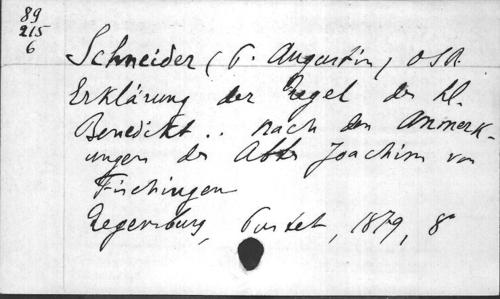 89
215
6
Schneider (P. Augustin) OSB.
Erklärung der Regel des hl.
Benedikt .. nach den Anmerk-
ungen des Abts Joachim von
Fischingen
Regensburg, Pustet, 1879, 8°